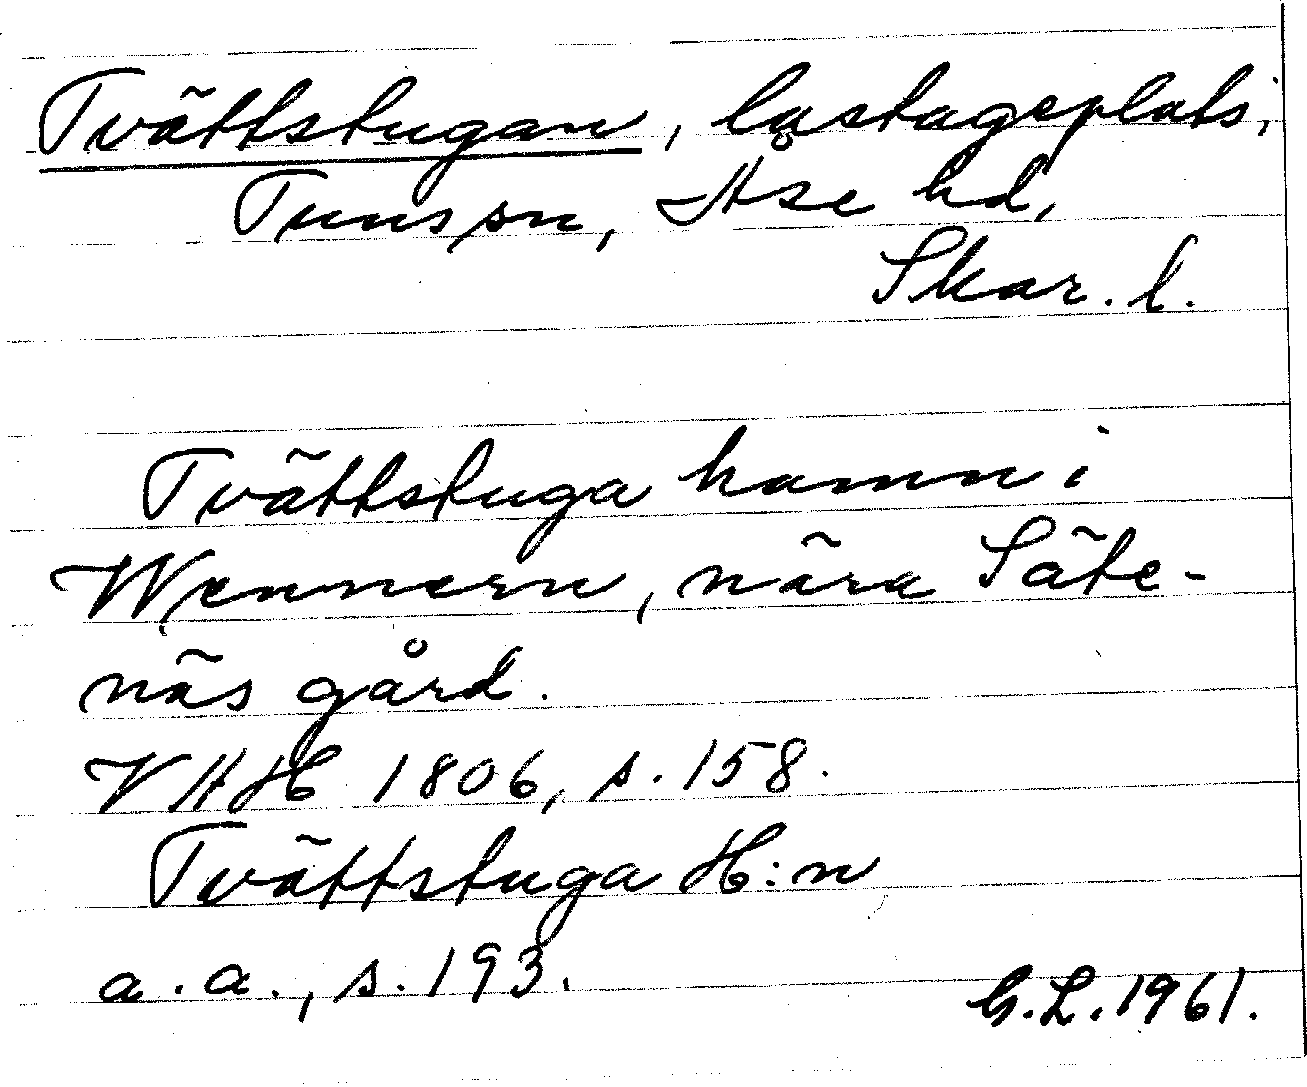 Tvättstugan, lastageplats,
Tuns sn, Åse hd,
Skar. l.
Tvättstuga hamn i
Wennern, nära Säte-
näs gård.
VAH 1806, s. 158.
Tvättstuga H:n
a. a., s. 193.
G. L. 1961.